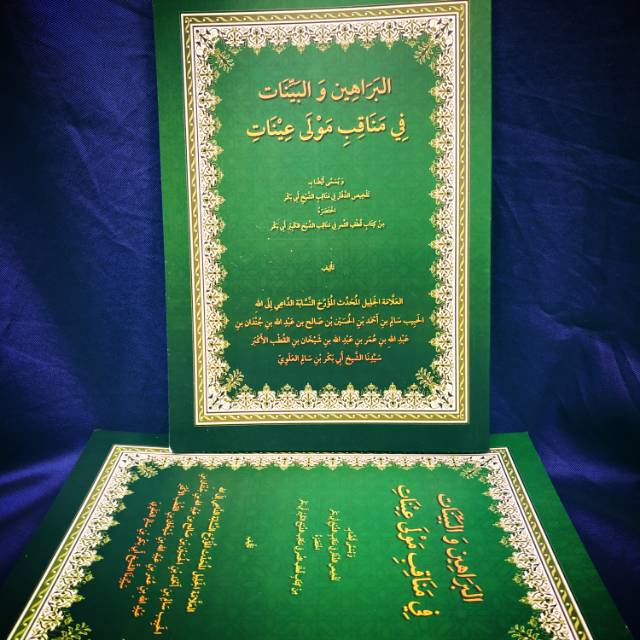 البَرَاهِين وَ البَيِّنَات
فِي مَنَاقِبِ مَوْلَى عِيْنَاتِ
وَ يُسَمَّى أَيْضًا بِـ
تَلْخِيصِ الدَّفْتَرِ فِي مَنَاقِبِ الشَّيْخِ أَبِي بَكْر
اخْتَصَرَهُ
مِنْ كِتَابِ قَطْفِ الثَّمَر فِي مَنَاقِبِ الشَّيْخِ الكَبِيْر أَبِي بَكْر
تَأْلِيف
العَلَّامَة الجَلِيل المُحَدِّث المُؤَرِّخ النَّسَّابَة الدَّاعِي إِلَى الله
الحَبِيب سَالِم بِن أَحْمَد بِن الحُسَيْن بِن صَالِح بِن عَبْدِ الله بِن جِنْدَان بِن
عَبْدِ الله بِن عُمَر بِن عَبْدِ الله بِن شَيْخَان بِن القُطْبِ الأَكْبَر
سَيِّدِنَا الشَّيْخ أَبِي بَكْر بِن سَالِم العَلَوِيّ
البَرَاهِين وَ البَيِّنَات
فِي مَنَاقِبِ مَوْلَى عِيْنَاتِ